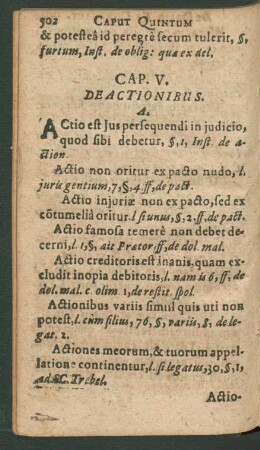 502 CAPUT QUINTUM
& potesteâ id peregrè secum tulerit, §,
furtum, Inst. de oblig: quæ ex del.
CAP. V.
DE ACTIONIBUS.
A.
ACtio est Jus persequendi in judicio,
quod sibi debetur, §, 1, Inst. de a-
ction.
Actio non oritur ex pacto nudo, l.
juris gentium, 7, §, 4. ff, de pact.
Actio injuriæ non ex pacto, sed ex
cõtumeliâ oritur. l si unus, §, 2, ff, de pact.
Actio famosa temerè non debet de-
cerni, l. 1, §, ait Prætor ff, de dol. mal.
Actio creditoris est inanis, quam ex-
cludit inopia debitoris, l. nam is 6, ff, de
dol. mal. c. olim. 1, de restit. spol.
Actionibus variis simul quis uti non
potest, l. cùm filius, 76, §, variis, §, de le-
gat. 2.
Actiones meorum, & tuorum appel-
latione continentur, l. si legatus, 30, §, 1,
ad SC. Trebel.
Actio-